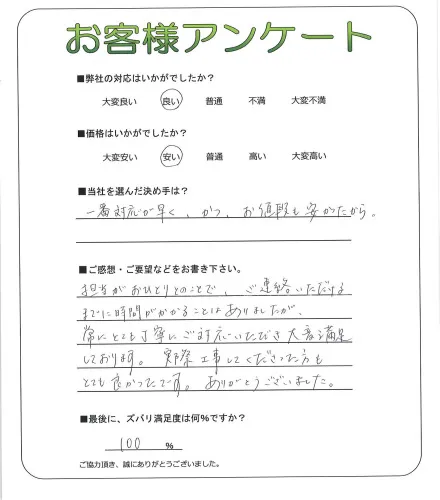 お客様アンケート
■弊社の対応はいかがでしたか?
大変良い 良い 普通 不満 大変不満
■価格はいかがでしたか?
大変安い 安い 普通 高い 大変高い
■当社を選んだ決め手は?
一番対応が早く、かつ、お値段も安かったから。
■ご感想・ご要望などをお書き下さい。
担当がおひとりとのことで、ご連絡いただける
までに時間がかかることはありましたが、
常にとても丁寧にご対応いただき大変満足
しております。 実際工事してくださった方も
とても良かったです。 ありがとうございました。
■最後に、ズバリ満足度は何%ですか?
100 %
ご協力頂き、誠にありがとうございました。